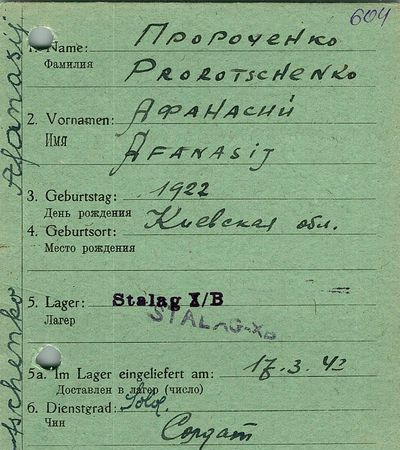 604
1. Name: Пророченко
Фамилия Prorotschenko
2. Vornamen: Афанасий
Имя Afanasij
3. Geburtstag: 1922
День рождения
4. Geburtsort: Киевская обл.
Место рождения
5. Lager: Stalag X/B
Лагер STALAG-XB
5a. Im Lager eingeliefert am: 17.3.42
Доставлен в лагер (число)
6. Dienstgrad: Sold.
Чин Солдат
Afanasij